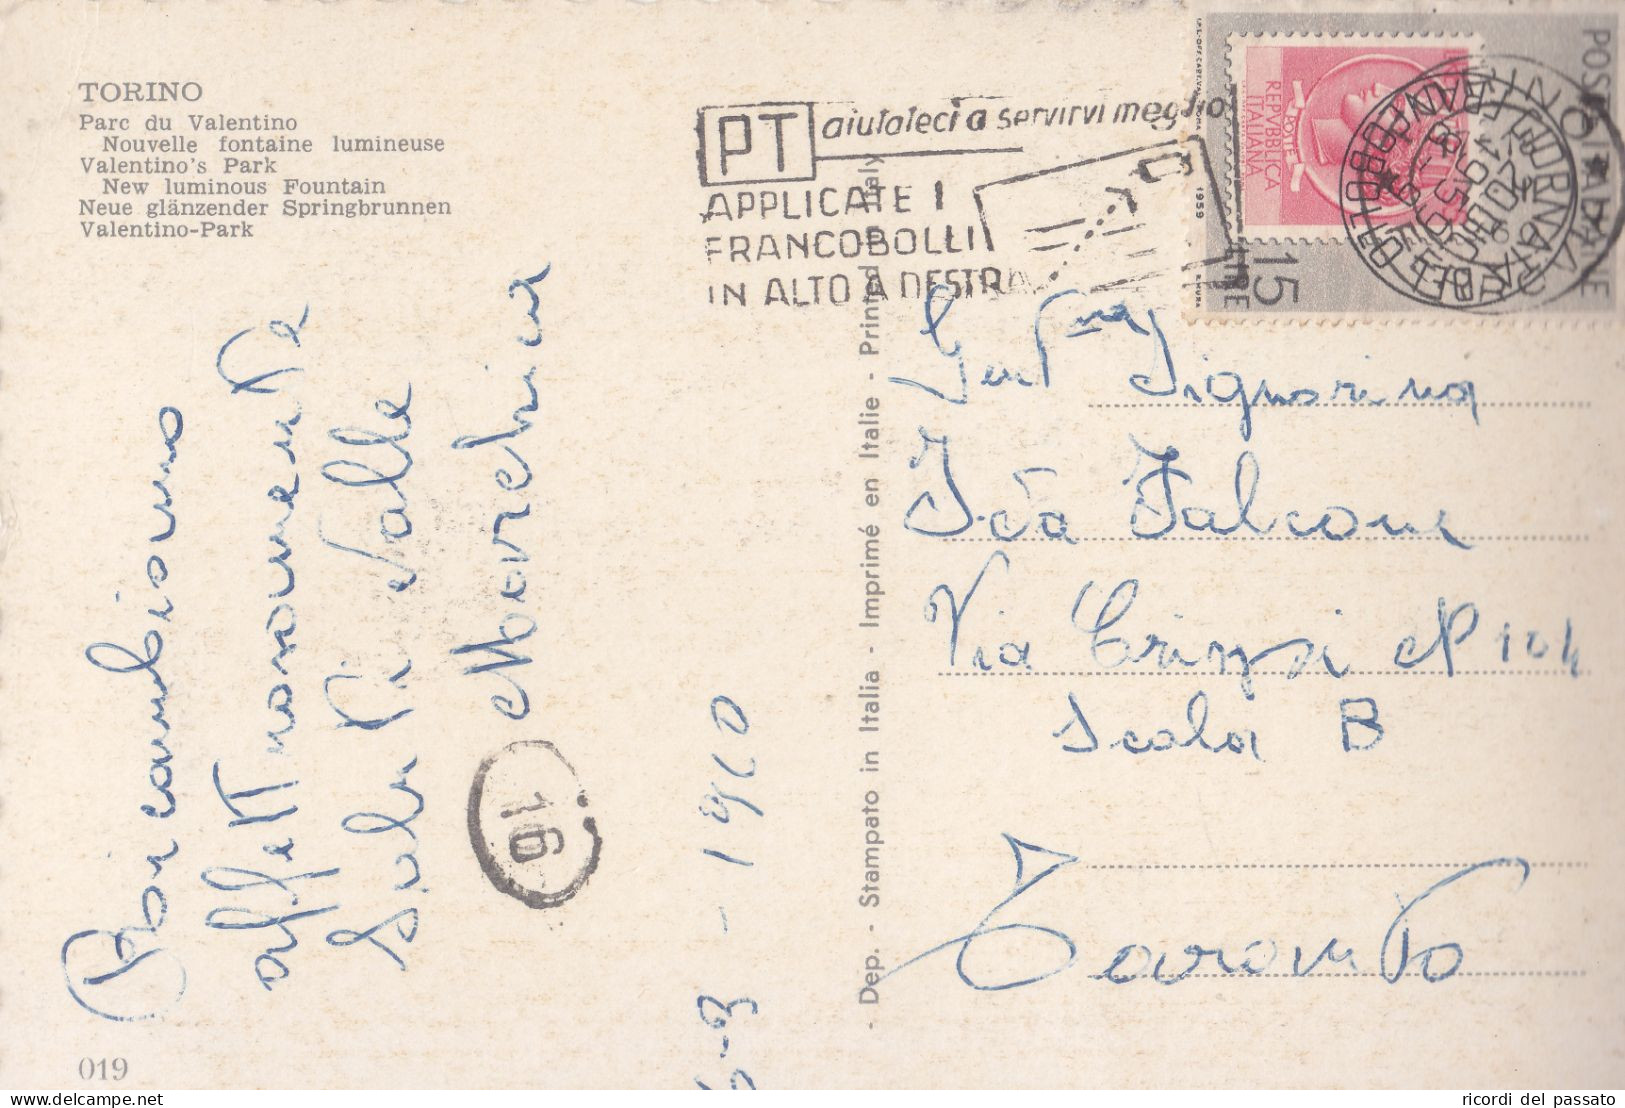 TORINO
Parc du Valentino
Nouvelle fontaine lumineuse
Valentino's Park
New luminous Fountain
Neue glänzender Springbrunnen
Valentino-Park
PT aiutateci a servirvi meglio
APPLICATE I
FRANCOBOLLI
IN ALTO A DESTRA
POSTE ITALIANE
REPVBBLICA
ITALIANA
POSTE
1959
LIRE 15
GIORNATA
DEL FRANCOBOLLO
Ricambiamo
affettuosamente
Saluti
16
-3-1960
Dep. - Stampato in Italia - Imprimé en Italie - Printed in Italy
Signorina
Ida Falcone
Via Crispi N 104
Scala B
Taranto
019
delcampe.net
ricordi del passato